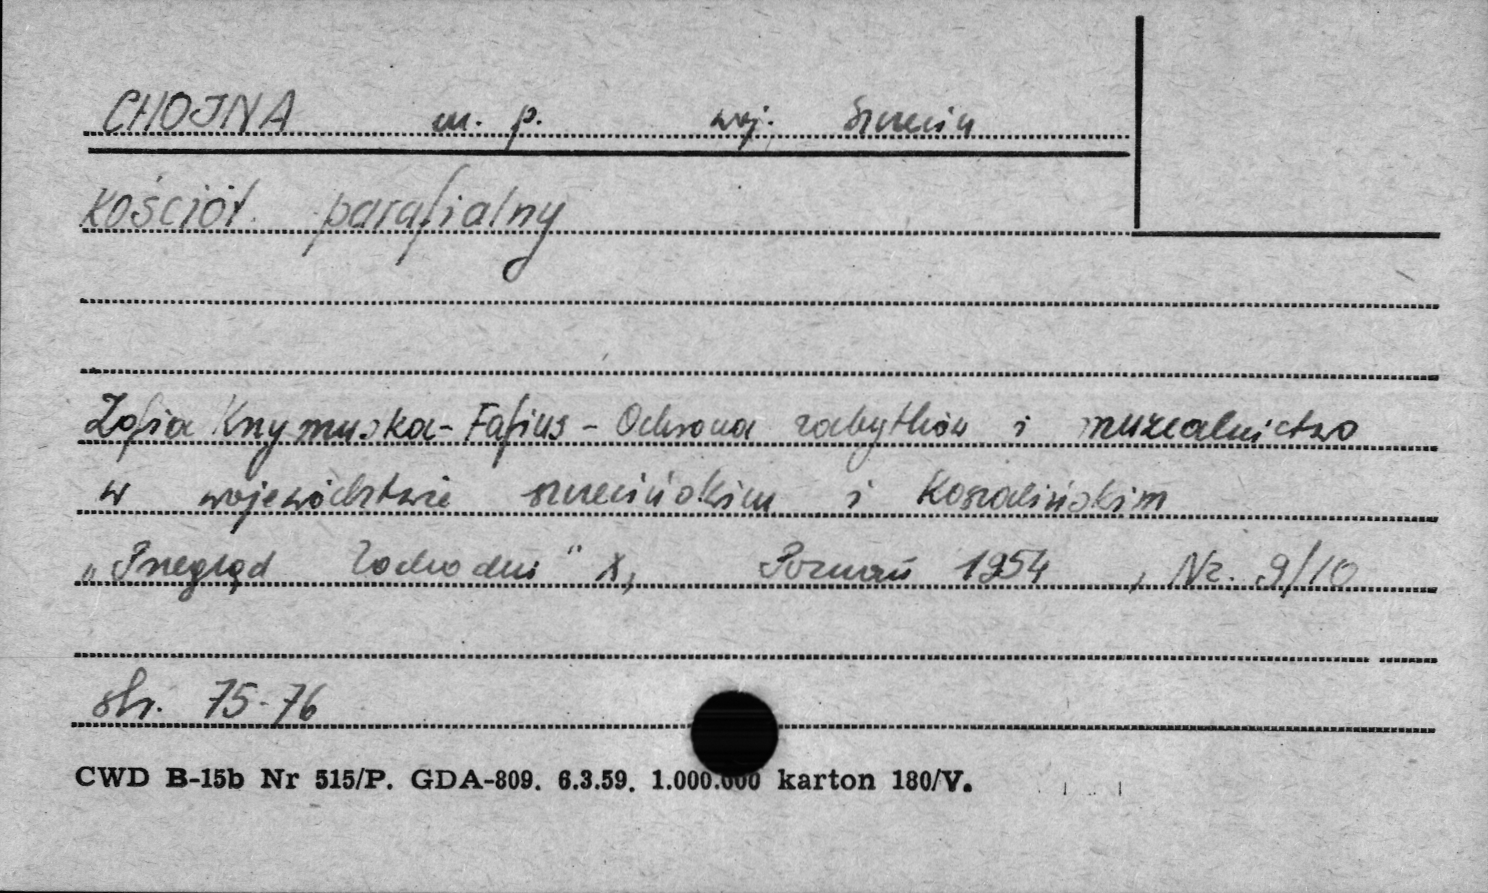 CHOJNA m. p. woj. Szczecin
Kościół parafialny
Zofia Krzymuska-Fafius - Ochrona zabytków i muzealnictwo
w województwie szczecińskim i Koszalińskim
„Przegląd Zachodni" X, Poznań 1954, Nr. 9/10
str. 75-76
CWD B-15b Nr 515/P. GDA-809. 6.3.59. 1.000.000 karton 180/V.